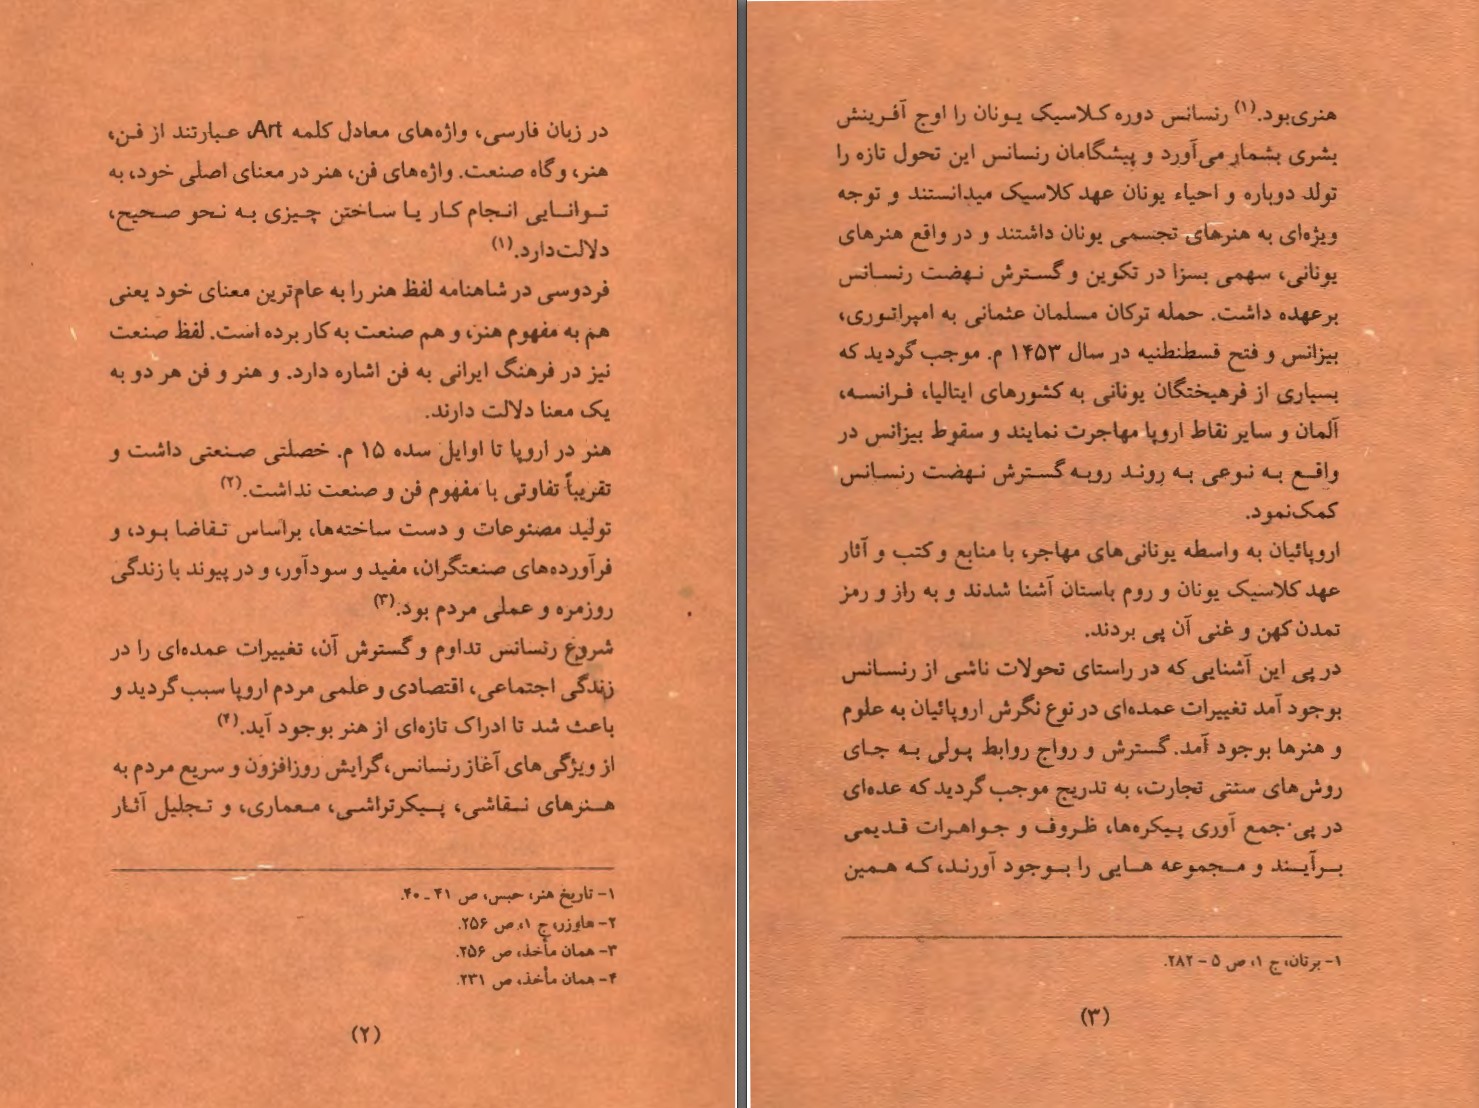 در زبان فارسی، واژه‌های معادل کلمه Art، عبارتند از فن،
هنر، وگاه صنعت. واژه‌های فن، هنر در معنای اصلی خود، به
توانایی انجام کار یا ساختن چیزی به نحو صحیح،
دلالت‌دارد.(۱)
فردوسی در شاهنامه لفظ هنر را به عام‌ترین معنای خود یعنی
هم به مفهوم هنر، و هم صنعت به کار برده است. لفظ صنعت
نیز در فرهنگ ایرانی به فن اشاره دارد. و هنر و فن هر دو به
یک معنا دلالت دارند.
هنر در اروپا تا اوایل سده ۱۵ م. خصلتی صنعتی داشت و
تقریباً تفاوتی با مفهوم فن و صنعت نداشت.(۲)
تولید مصنوعات و دست ساخته‌ها، براساس تقاضا بود، و
فرآورده‌های صنعتگران، مفید و سودآور، و در پیوند با زندگی
روزمره و عملی مردم بود.(۳)
شروع رنسانس تداوم و گسترش آن، تغییرات عمده‌ای را در
زندگی اجتماعی، اقتصادی و علمی مردم اروپا سبب گردید و
باعث شد تا ادراک تازه‌ای از هنر بوجود آید.(۴)
از ویژگی‌های آغاز رنسانس، گرایش روزافزون و سریع مردم به
هنرهای نقاشی، پیکرتراشی، معماری، و تجلیل آثار
۱- تاریخ هنر، جبس، ص ۴۱ ـ ۴۰.
۲- هاوزر، ج ۱، ص ۲۵۶.
۳- همان مأخذ، ص ۲۵۶.
۴- همان مأخذ، ص ۲۳۱.
(۲)
هنری‌بود.(۱) رنسانس دوره کلاسیک یونان را اوج آفرینش
بشری بشمار می‌آورد و پیشگامان رنسانس این تحول تازه را
تولد دوباره و احیاء یونان عهد کلاسیک میدانستند و توجه
ویژه‌ای به هنرهای تجسمی یونان داشتند و در واقع هنرهای
یونانی، سهمی بسزا در تکوین و گسترش نهضت رنسانس
برعهده داشت. حمله ترکان مسلمان عثمانی به امپراتوری،
بیزانس و فتح قسطنطنیه در سال ۱۴۵۳ م. موجب گردید که
بسیاری از فرهیختگان یونانی به کشورهای ایتالیا، فرانسه،
آلمان و سایر نقاط اروپا مهاجرت نمایند و سقوط بیزانس در
واقع به نوعی به روند روبه گسترش نهضت رنسانس
کمک‌نمود.
اروپائیان به واسطه یونانی‌های مهاجر، با منابع و کتب و آثار
عهد کلاسیک یونان و روم باستان آشنا شدند و به راز و رمز
تمدن کهن و غنی آن پی بردند.
در پی این آشنایی که در راستای تحولات ناشی از رنسانس
بوجود آمد تغییرات عمده‌ای در نوع نگرش اروپائیان به علوم
و هنرها بوجود آمد. گسترش و رواج روابط پولی به جای
روش‌های سنتی تجارت، به تدریج موجب گردید که عده‌ای
در پی جمع آوری پیکره‌ها، ظروف و جواهرات قدیمی
برآیند و مجموعه هایی را بوجود آورند، که همین
۱- برتان، ج ۱، ص ۵ - ۲۸۲.
(۳)